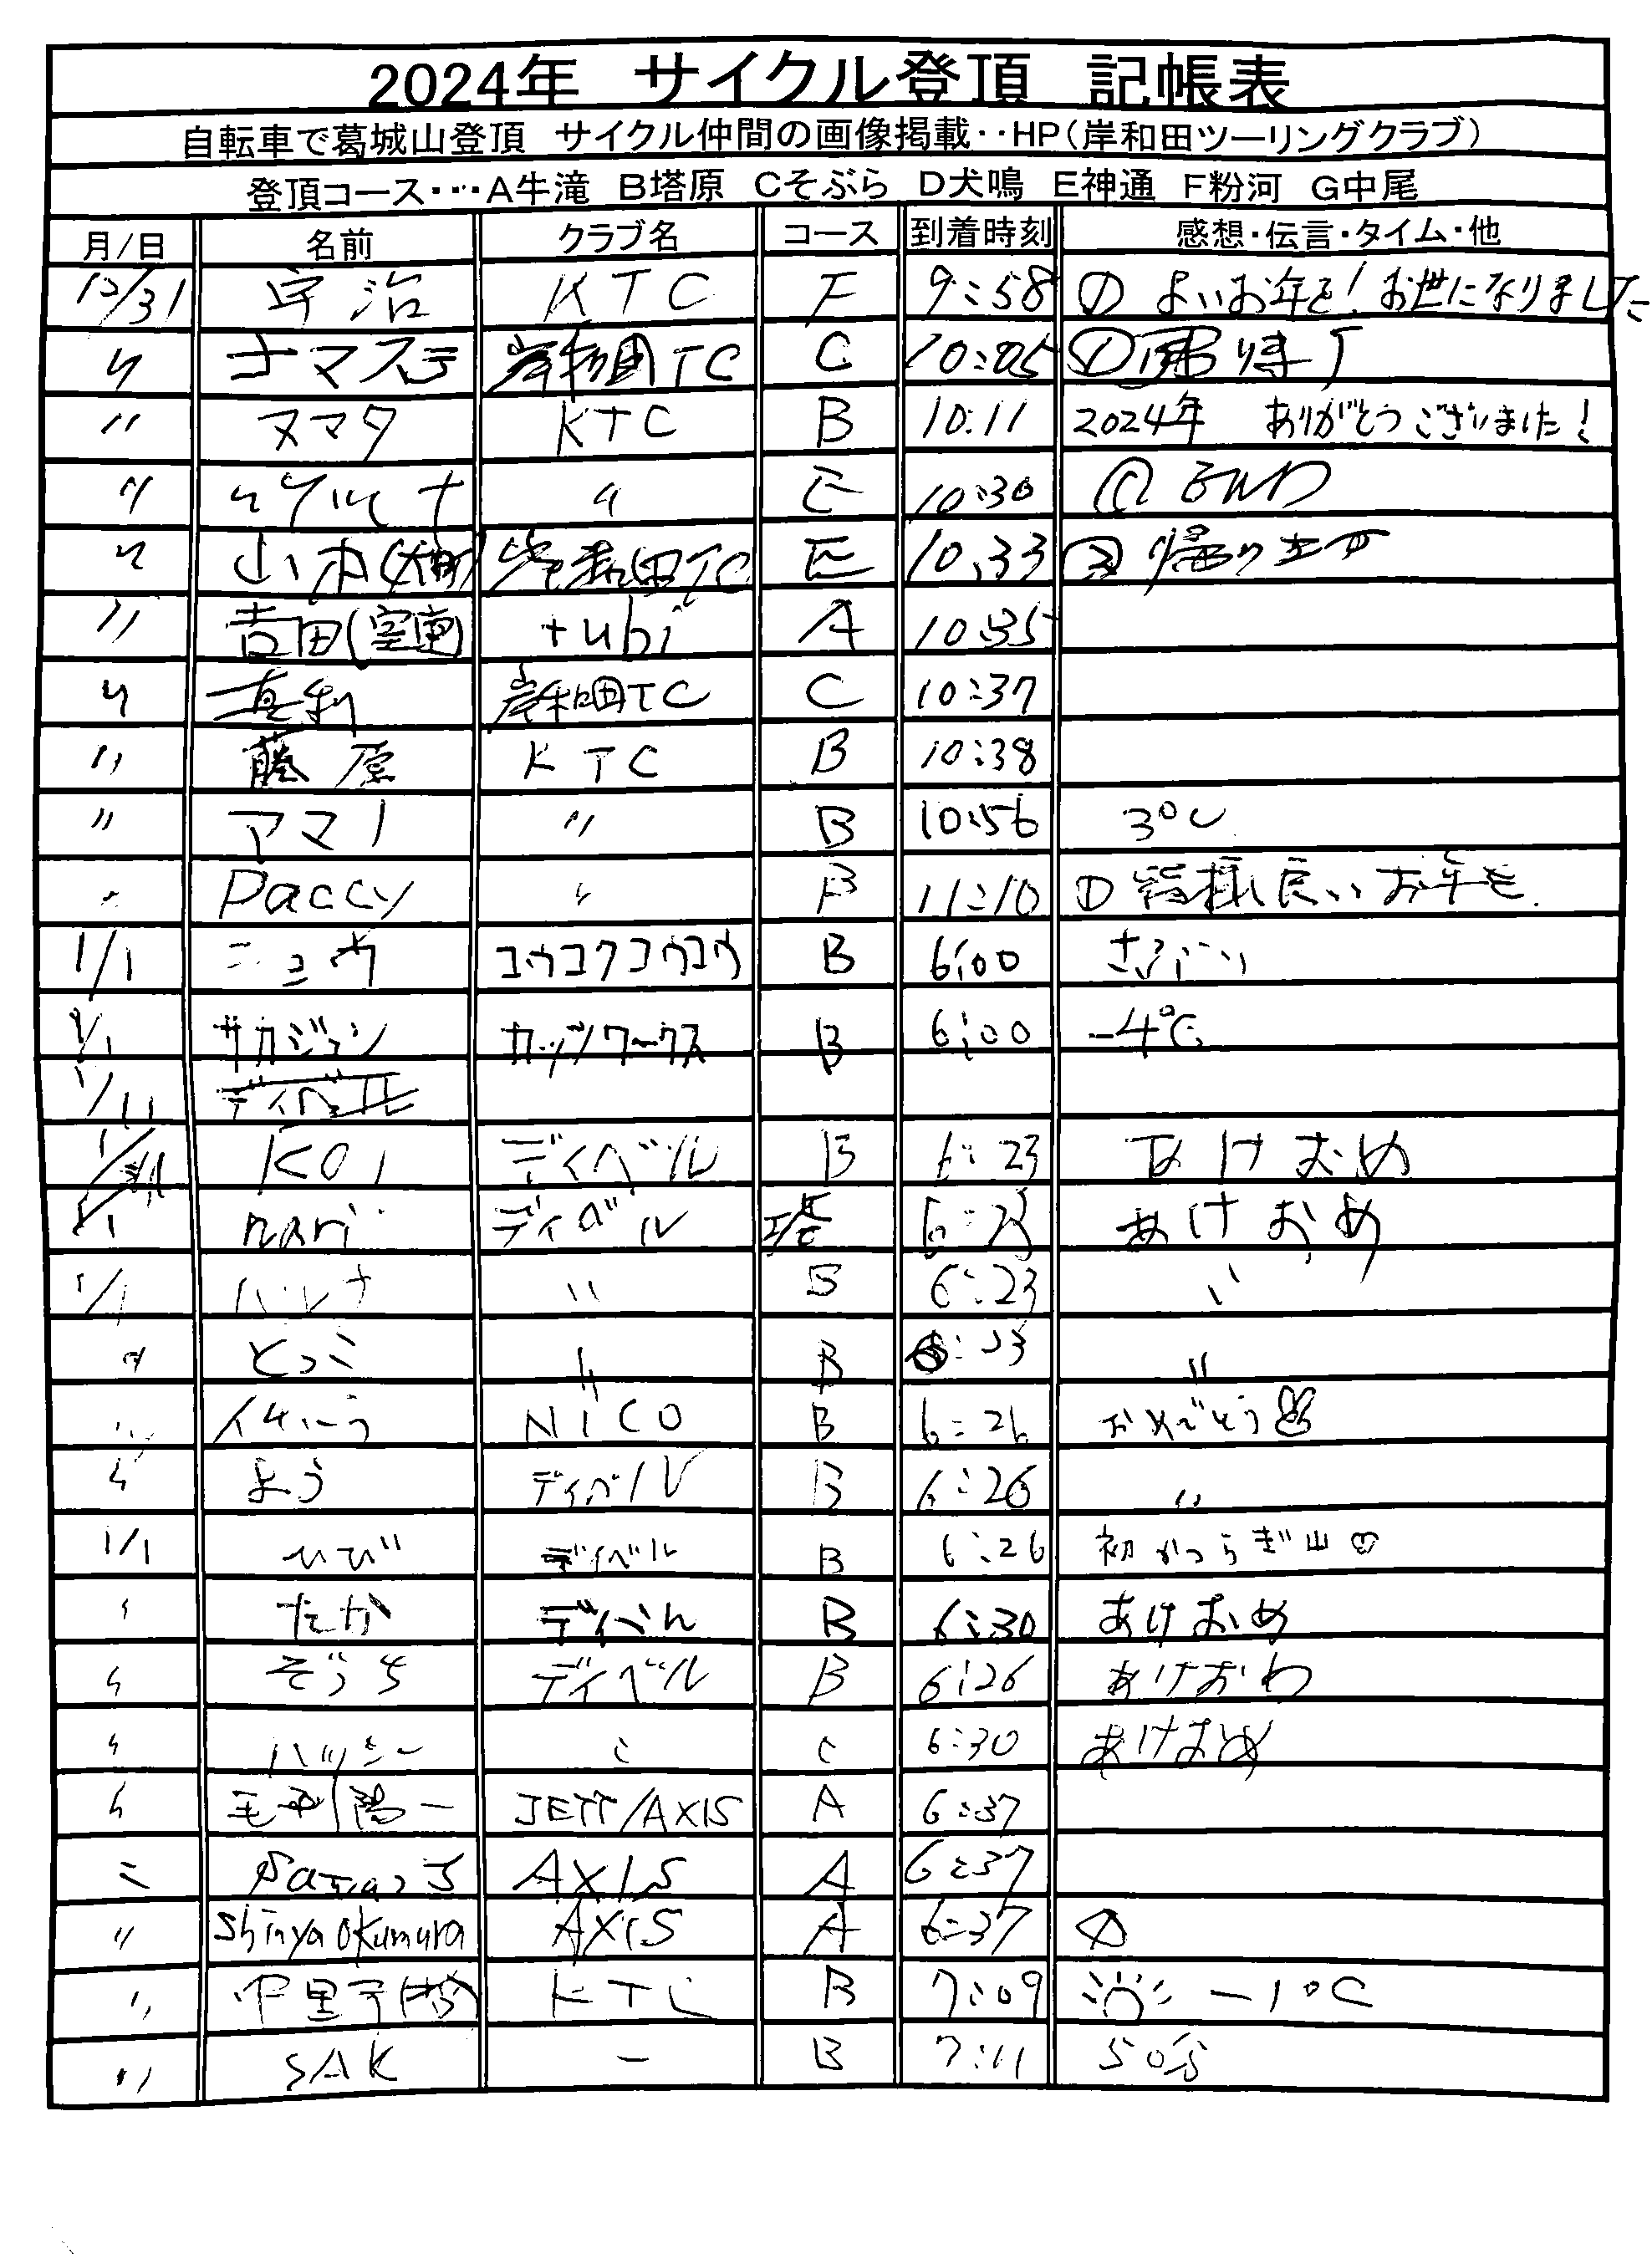 2024年 サイクル登頂 記帳表
自転車で葛城山登頂 サイクル仲間の画像掲載‥HP(岸和田ツーリングクラブ)
登頂コース・・・A牛滝 B塔原 Cそぶら D犬鳴 E神通 F粉河 G中尾
月/日 名前 クラブ名 コース 到着時刻 感想・伝言・タイム・他
12/31 宇治 KTC F 9:58 ① よいお年を! お世になりました
〃 ナマステ 岸和田TC C 10:05 ①
〃 ヌマタ KTC B 10:11 2024年 ありがとうございました!
〃 〃 E 10:30
〃 山本(大町) 岸和田TC E 10:33 帰ります
〃 吉田(室堂) tubi A 10:35
〃 真利 岸和田TC C 10:37
〃 藤原 KTC B 10:38
〃 アマノ 〃 B 10:56 3℃
〃 Paccy 〃 B 11:10 ① 皆様良いお年を.
1/1 ニュウ コウコクコウコウ B 6:00 さぶい
1/1 サカジュン カッツワークス B 6:00 -4℃
1/11 ディベル
1/1 KOJ ディベル B 6:23 あけおめ
1/1 nari ディベル 塔 6:23 あけおめ
1/1 ハルナ 〃 B 6:23 〃
〃 とっこ 〃 B 6:23 〃
〃 NiCO B 6:26 おめでとう
〃 よう ディベル B 6:26 〃
1/1 ひび ディベル B 6:26 初かつらぎ山♡
〃 たか ディベル B 6:30 あけおめ
〃 ぞうち ディベル B 6:26 あけおめ
〃 ハッシー 〃 〃 6:30 あけおめ
〃 毛利陽一 JETT/AXIS A 6:37
〃 AXIS A 6:37
〃 Shinya Okumura AXIS A 6:37 ①
〃 中里 KTC B 7:09 -1℃
〃 SAK ー B 7:11 50分